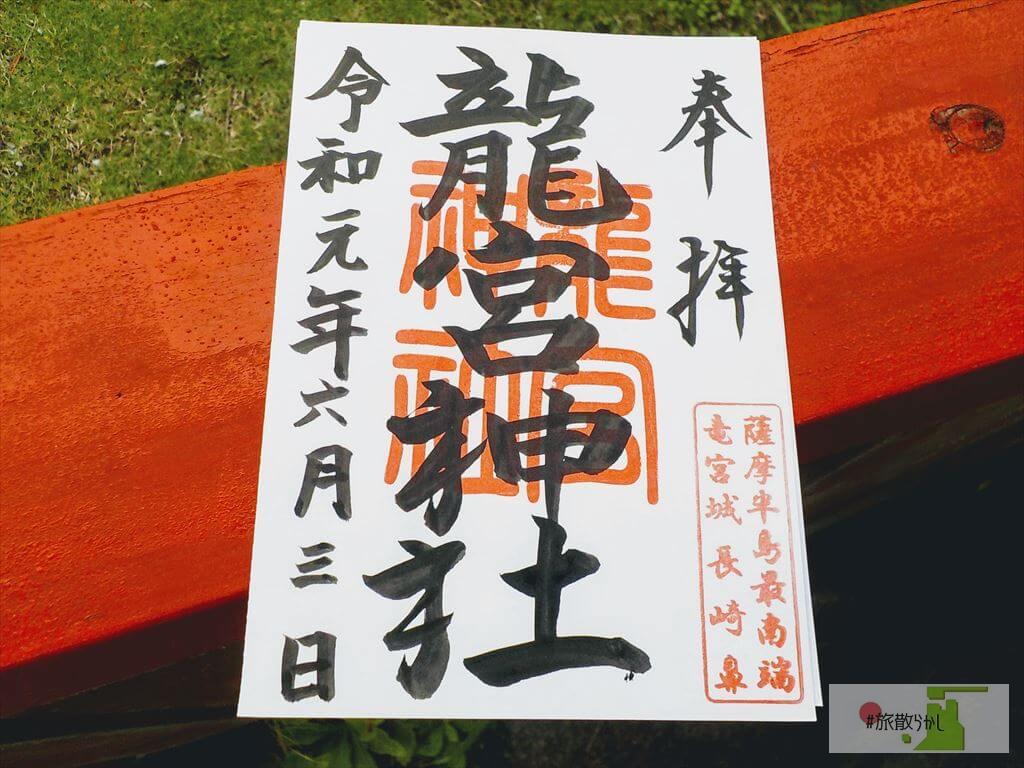 奉拝
薩摩半島最南端
竜宮城長崎鼻
龍宮神社
龍宮
神社
令和元年六月三日
#旅散らかし